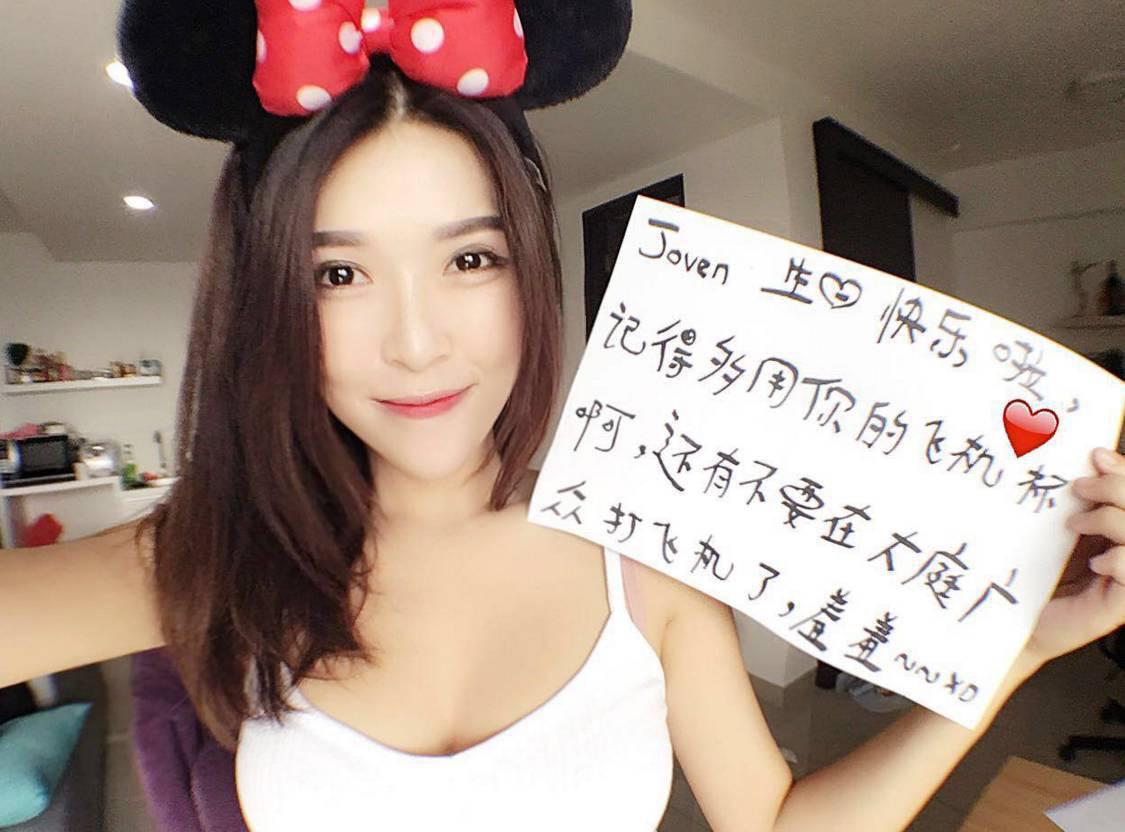 Joven 生♡快乐 啦，
记得多用你的飞机杯
啊，还有不要在大庭广
众打飞机了，羞羞~~xD